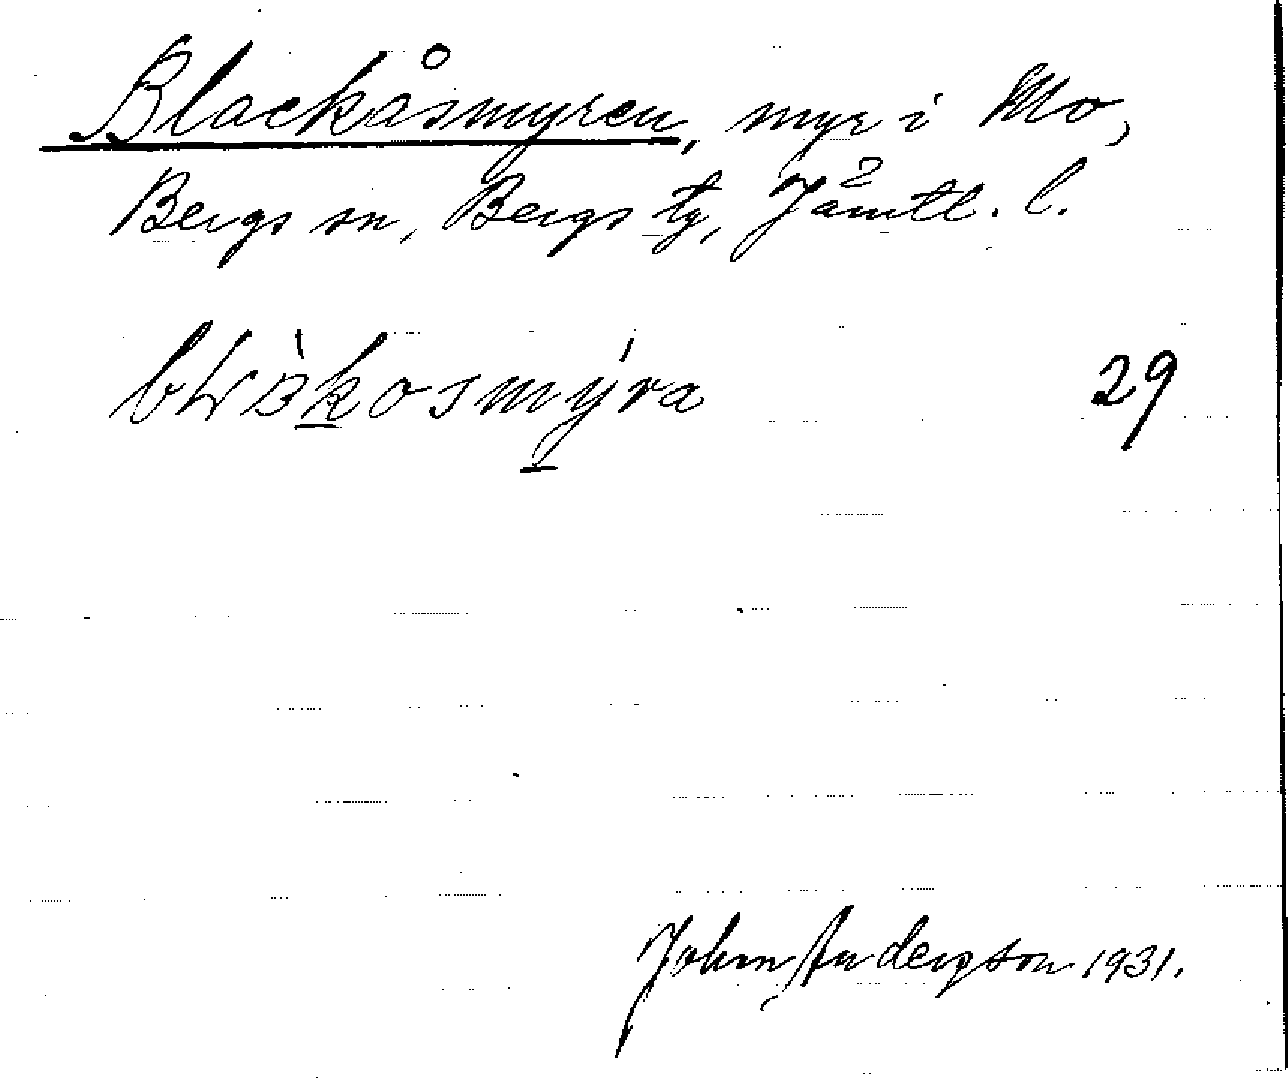 Blackåsmyren, myr i Mo,
Bergs sn, Bergs tg, Jämtl. l.
29
John Andersson 1931.